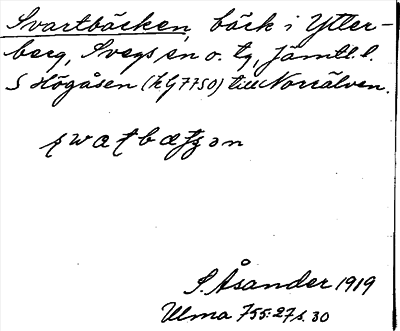 Svartbäcken, bäck i Ytter-
berg, Svegs sn o. tg, Jämtl. l.
S Högåsen (h G 7750) till Norrälven.
S. Åsander 1919
Ulma 755:27 s. 30